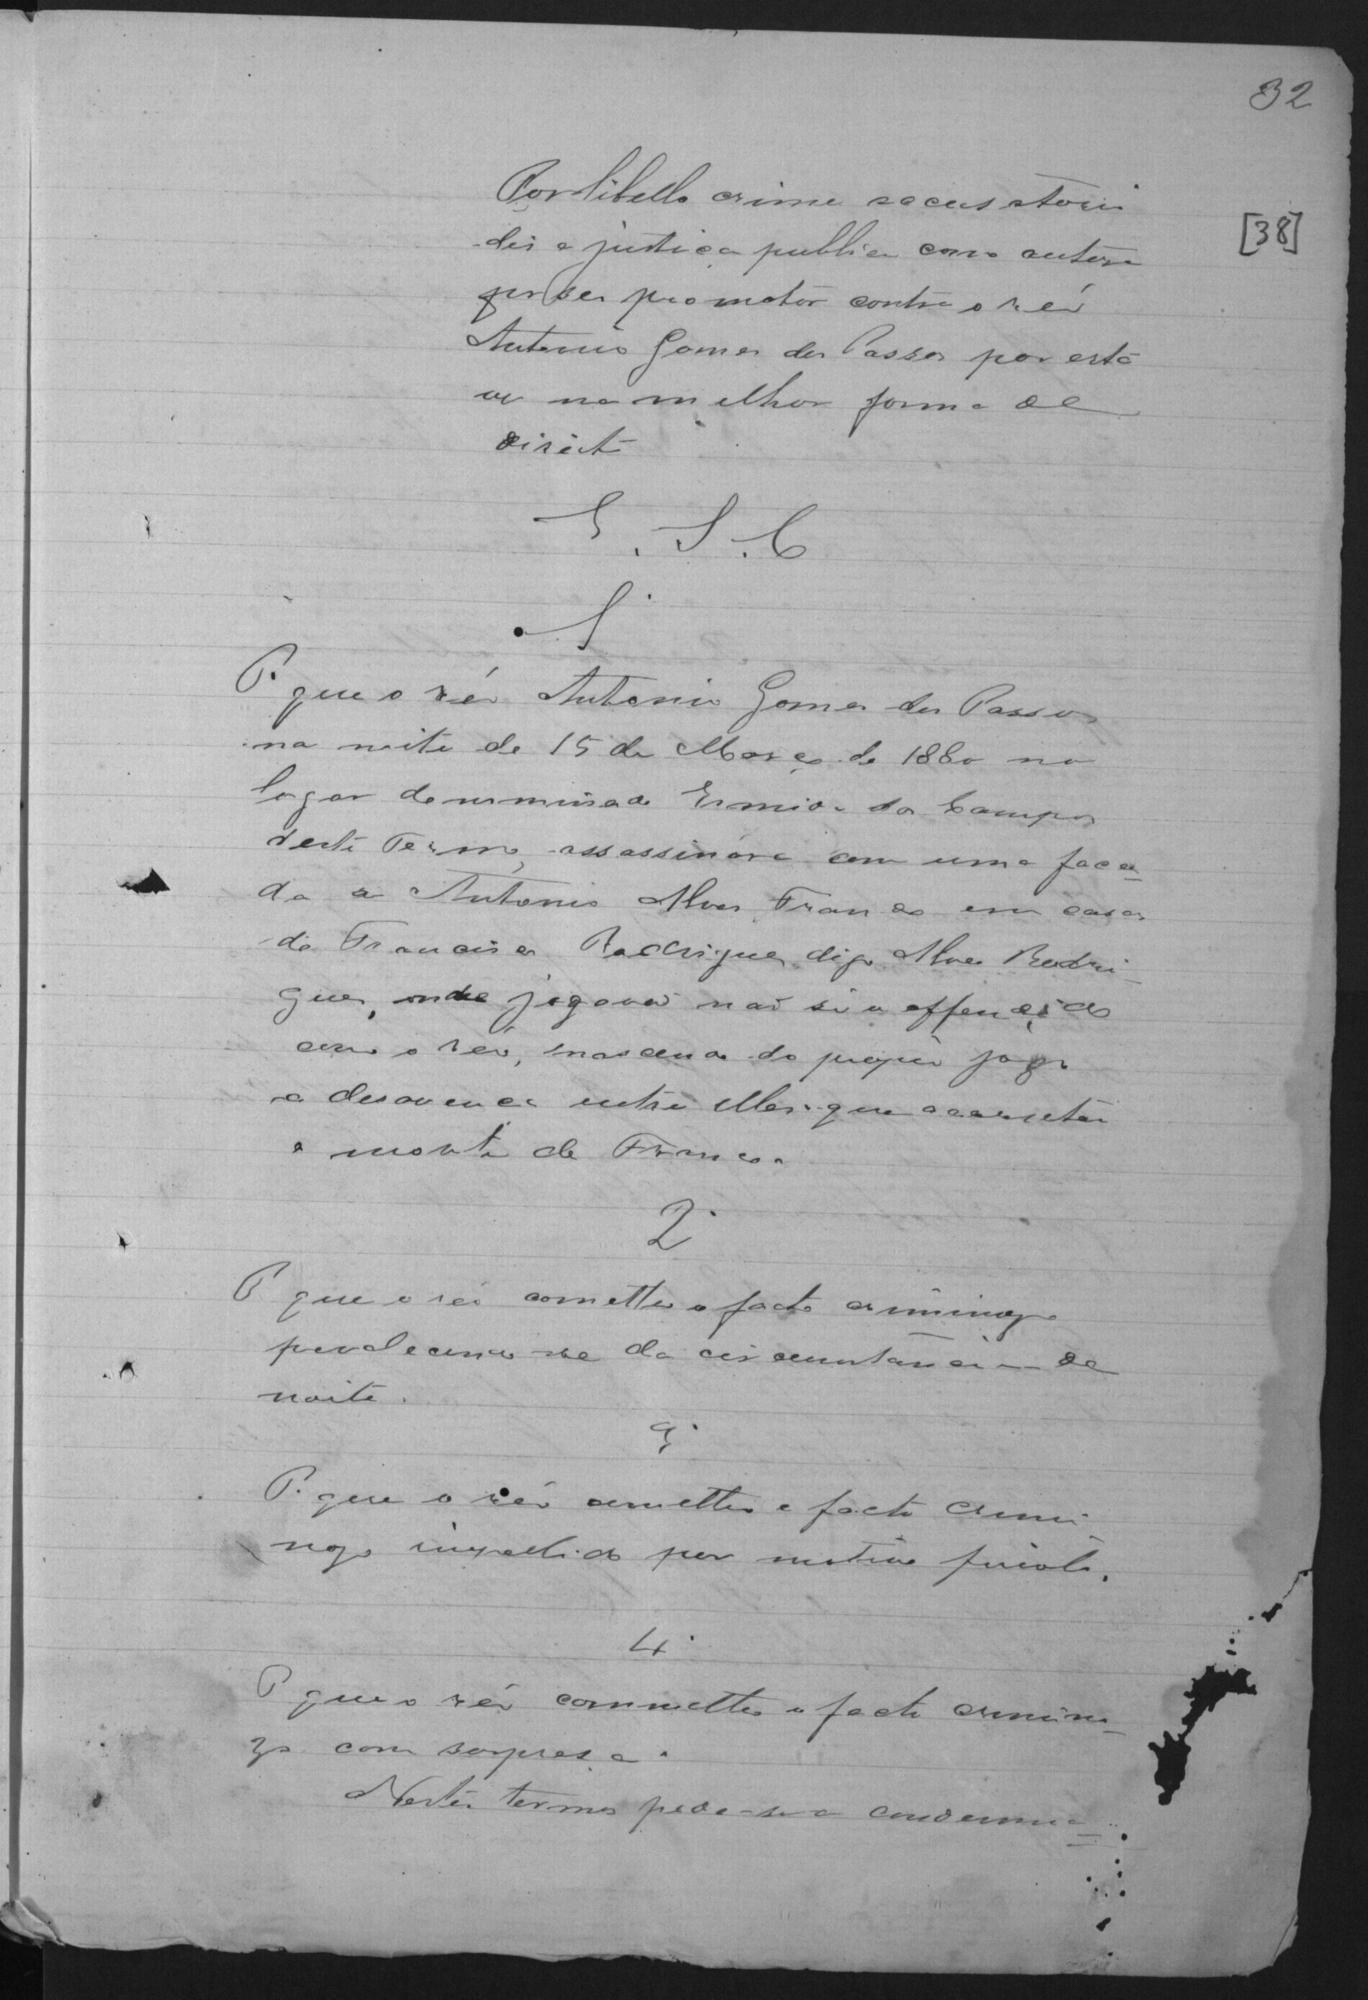 32
[38]
Por libello crime accusatorio
diz a justiça publica como autora
por seu promotor contra o réu
Antonio Gomes dos Passos por esta
ou na melhor forma de
direito
E. S. C
1º
P. que o réu Antonio Gomes dos Passos
na noite de 15 de Março de 1880 no
logar denominado Ermida dos Campos
deste Termo, assassinára com uma faca-
da a Antonio Alves Franco em casa
de Francisco Rodrigues, digo Alves Rodri-
gues, onde jogava não só o offendido
como o réu, nascendo do proprio jogo
a desavença entre elles que acarretou
a morte de Franco.
2º
P que o réu cometteu o facto criminozo
prevalecendo-se da circumstancia de
noite.
3º
P. que o réu cometteu o facto crimi-
nozo impellido por motivo frivolo.
4º
P que o réu commetteu o facto crimino-
zo com sorpresa.
Nestes termos pede-se a condemna-